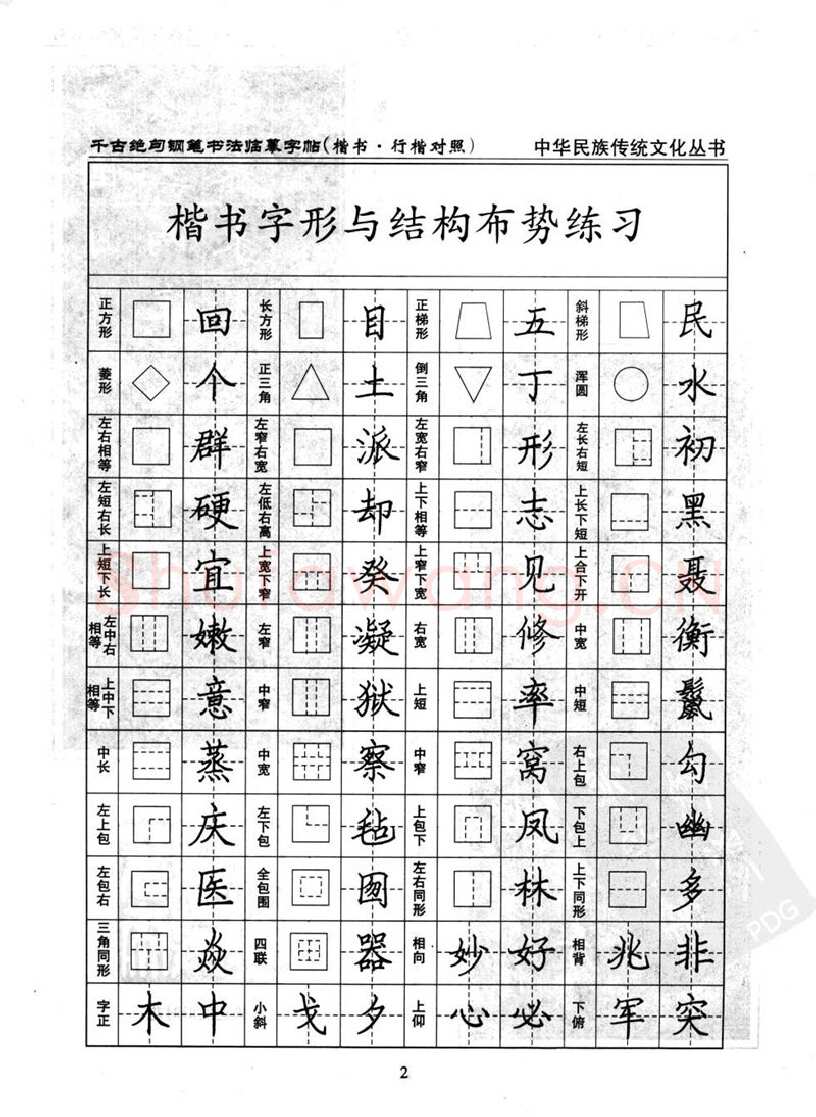 千古绝句钢笔书法临摹字帖(楷书·行楷对照) 中华民族传统文化丛书
楷书字形与结构布势练习
正方形 回 长方形 目 正梯形 五 斜梯形 民
菱形 个 正三角 土 倒三角 丁 浑圆 水
左右相等 群 左窄右宽 派 左宽右窄 形 左长右短 初
左短右长 硬 左低右高 却 上下相等 志 上长下短 黑
上短下长 宜 上宽下窄 癸 上窄下宽 见 上合下开 聂
左中右相等 嫩 左窄 凝 右宽 修 中宽 衡
上中下相等 意 中窄 狱 上短 率 中短 鬣
中长 蒸 中宽 察 中窄 窝 右上包 勾
左上包 庆 左下包 毡 上包下 凤 下包上 幽
左包右 医 全包围 囫 左右同形 林 上下同形 多
三角同形 焱 四联 器 相向 妙 好 相背 兆 非
字正 木 中 小斜 戈 夕 上仰 心 必 下俯 军 突
2
Shufawang.CN
PDG